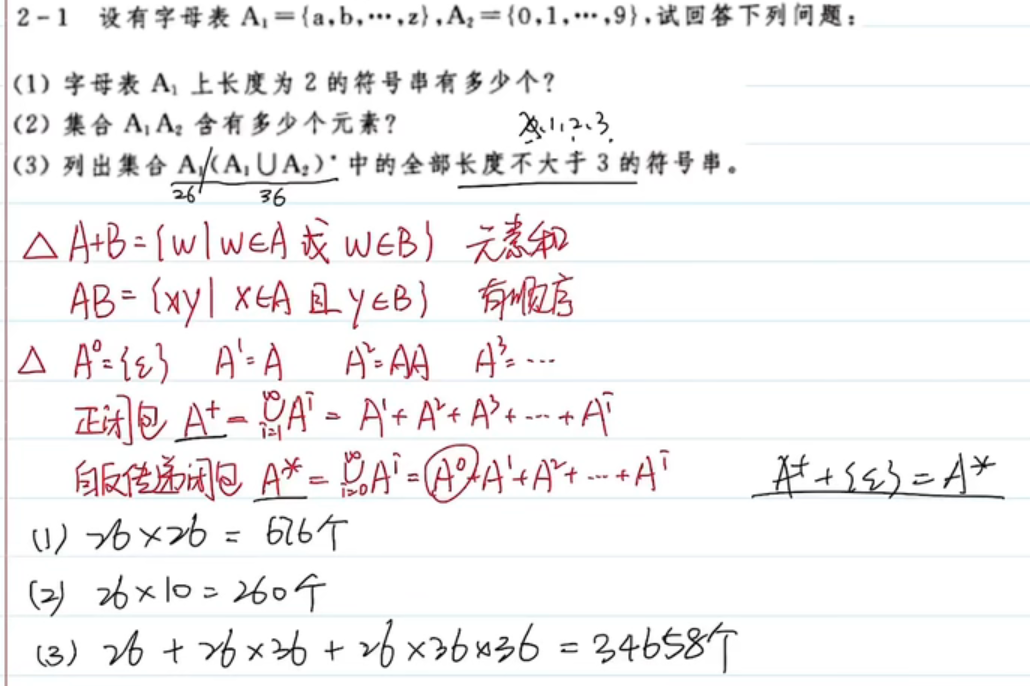 2-1 设有字母表 A₁={a,b,…,z},A₂={0,1,…,9},试回答下列问题:
(1) 字母表 A₁ 上长度为 2 的符号串有多少个?
(2) 集合 A₁A₂ 含有多少个元素?
1、2、3
(3) 列出集合 A₁(A₁∪A₂)* 中的全部长度不大于 3 的符号串。
26 36
△ A+B={w|w∈A 或 w∈B} 元素和
AB={xy| x∈A 且 y∈B} 有顺序
△ A⁰={ε} A¹=A A²=AA A³=…
正闭包 A⁺=∪(i=1,∞)Aⁱ = A¹+A²+A³+…+Aⁱ
自反传递闭包 A*=∪(i=0,∞)Aⁱ=A⁰+A¹+A²+…+Aⁱ A⁺+{ε}=A*
(1) 26×26 = 676个
(2) 26×10=260个
(3) 26+26×36+26×36×36=34658个